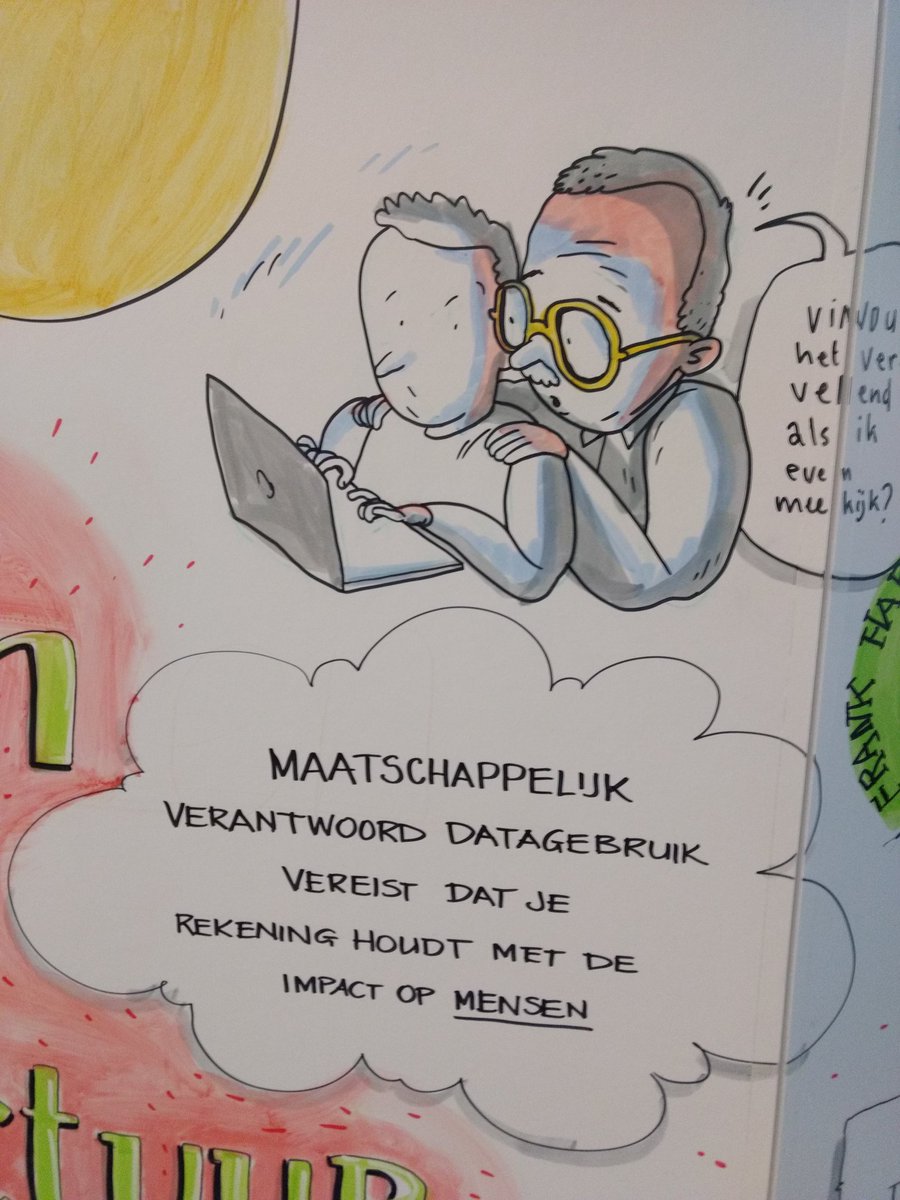 het ver
velend
als ik
even
mee kijk?
MAATSCHAPPELIJK
VERANTWOORD DATAGEBRUIK
VEREIST DAT JE
REKENING HOUDT MET DE
IMPACT OP MENSEN
FRANK